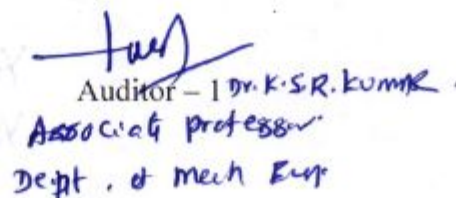 Auditor – 1 Dr. K.S.R. Kumar.
Associate professor
Deipt. of Mech Eng.